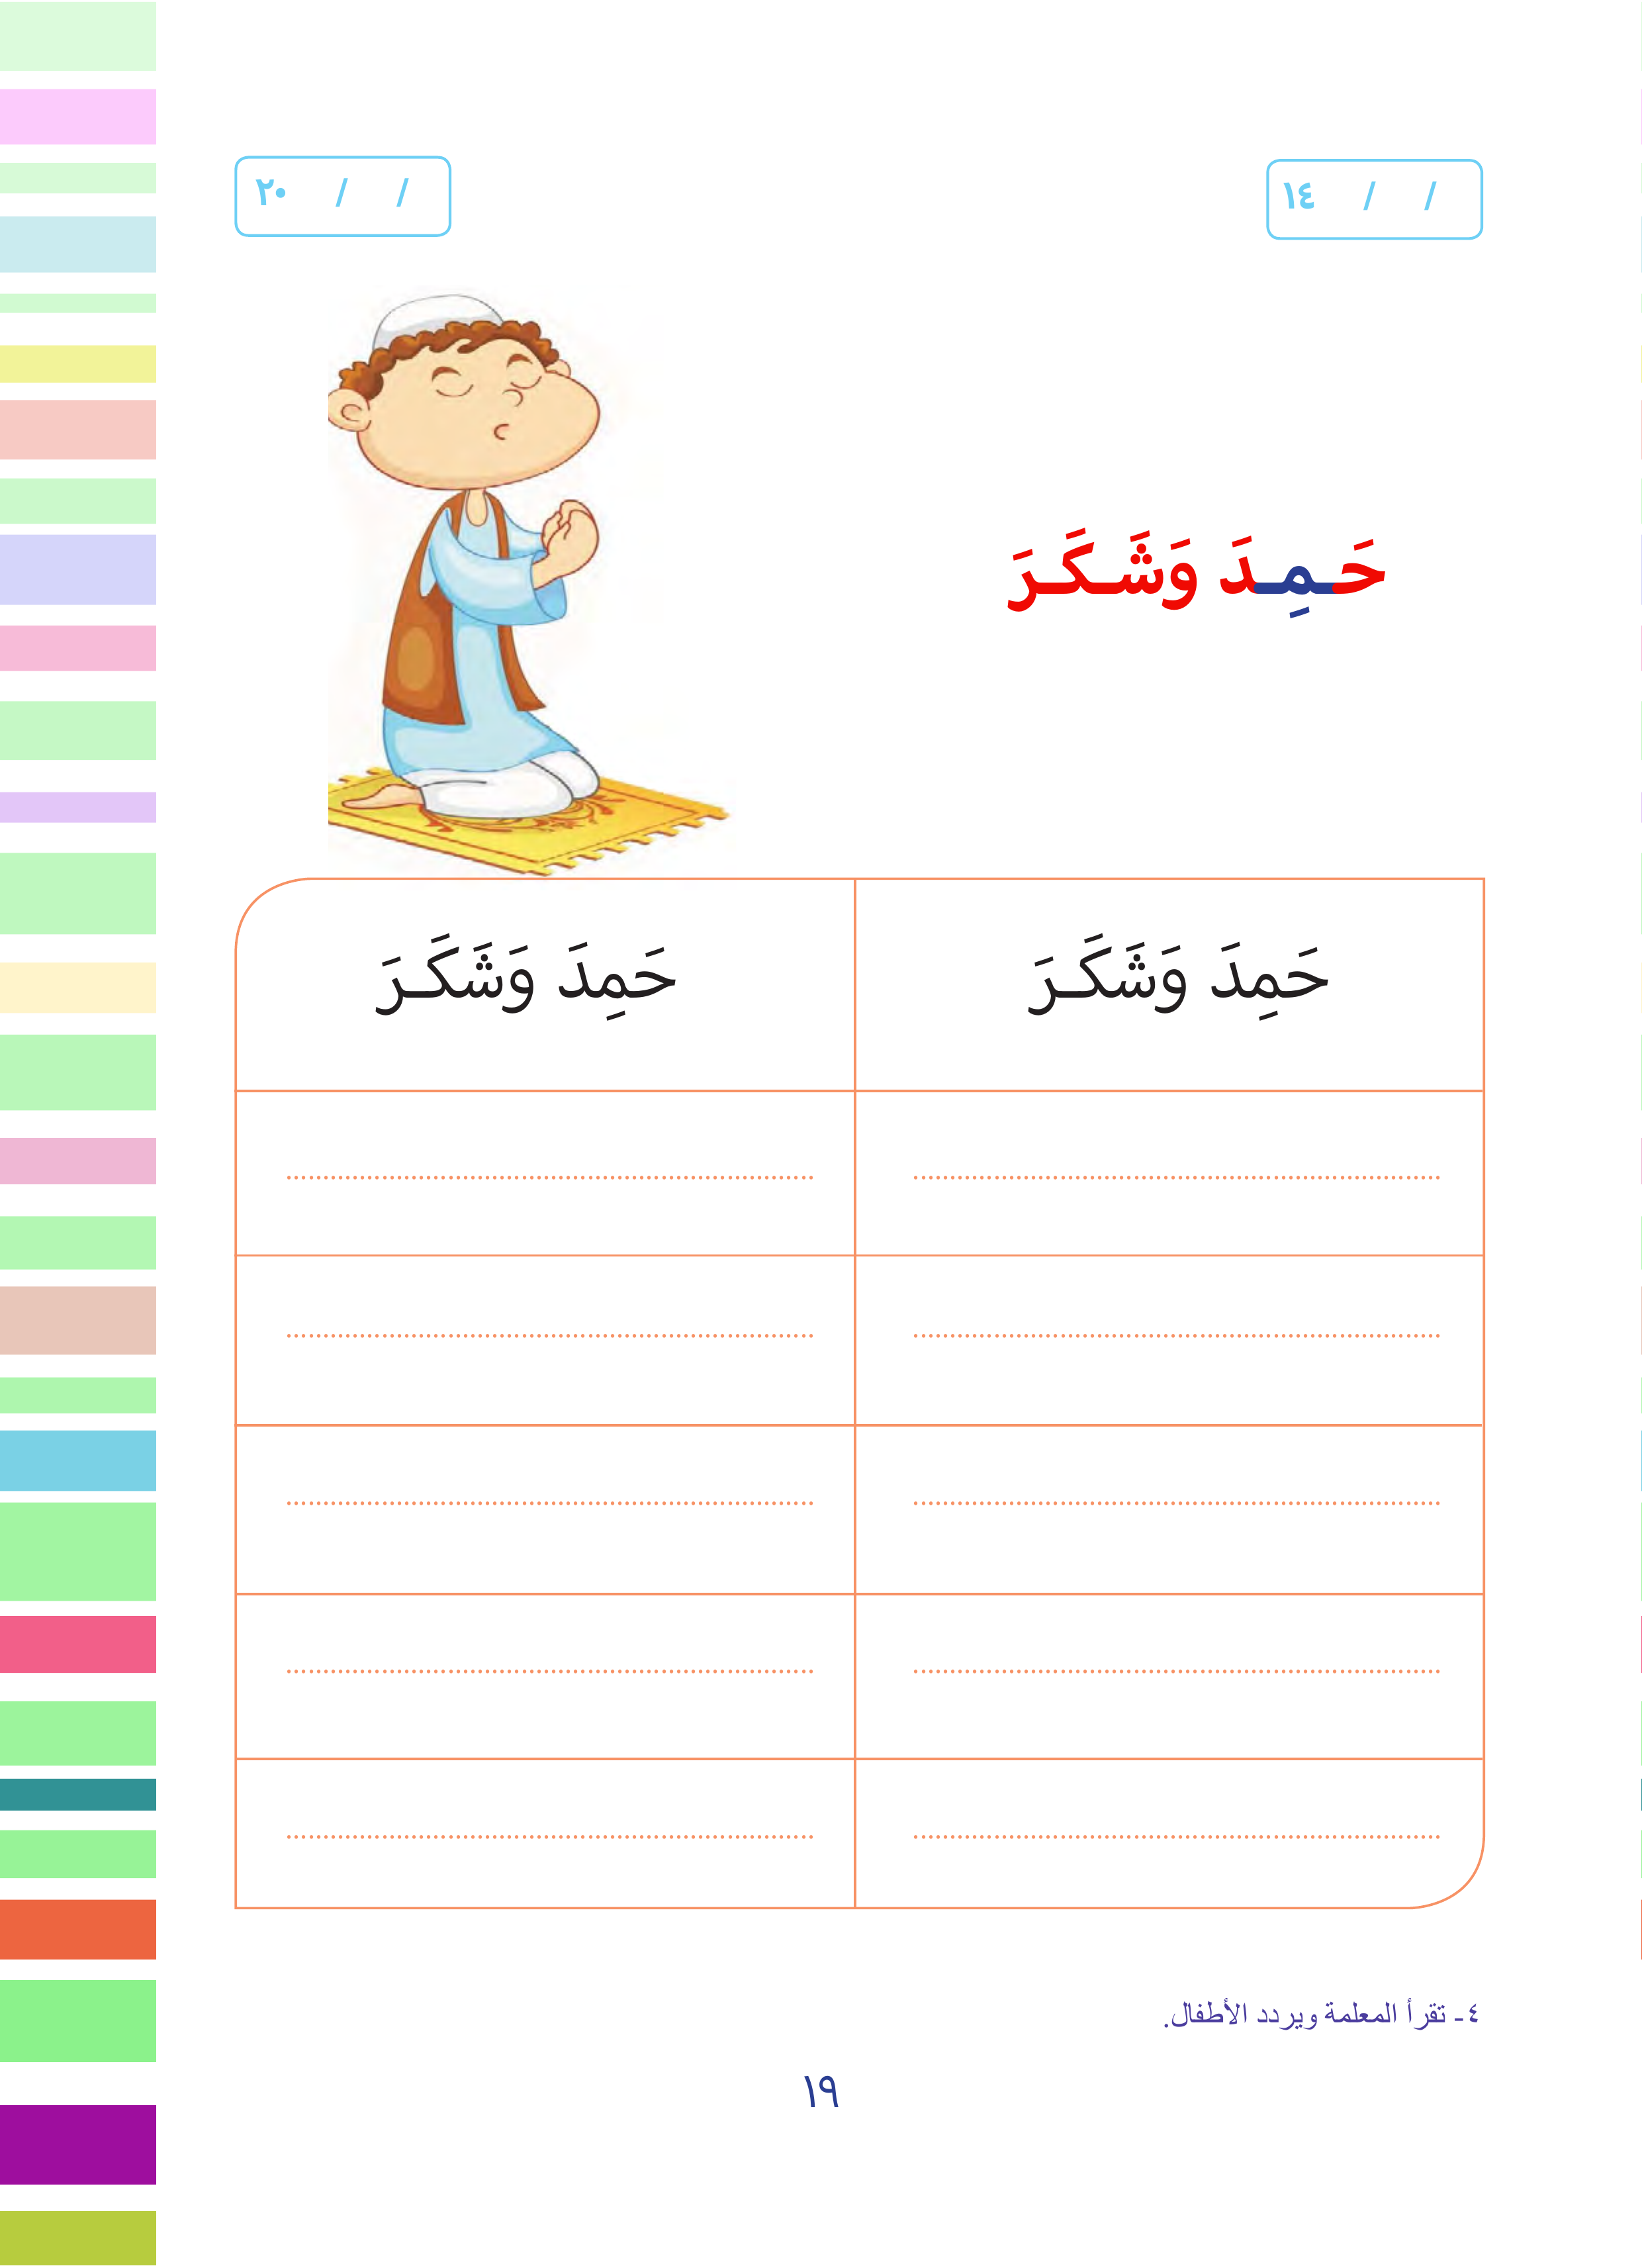 / / ١٤
/ / ٢٠
حَـمِـدَ وَشَـكَـرَ
حَمِدَ وَشَكَـرَ
حَمِدَ وَشَكَـرَ
٤ - تقرأ المعلمة ويردد الأطفال.
١٩